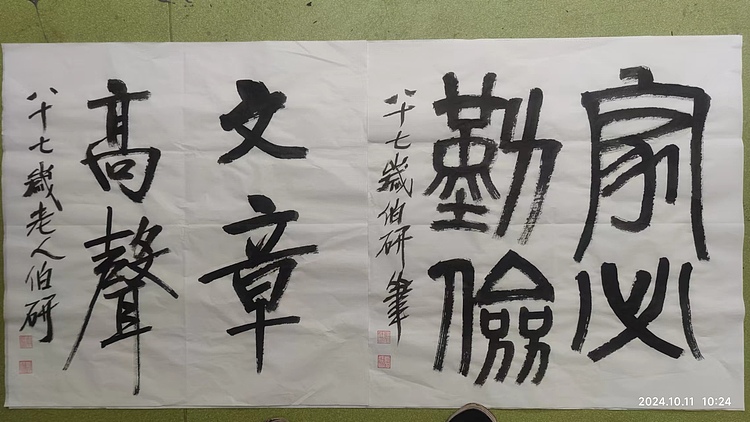 家必
勤儉
八十七歲伯研筆
文章
高聲
八十七歲老人伯研
2024.10.11 10:24